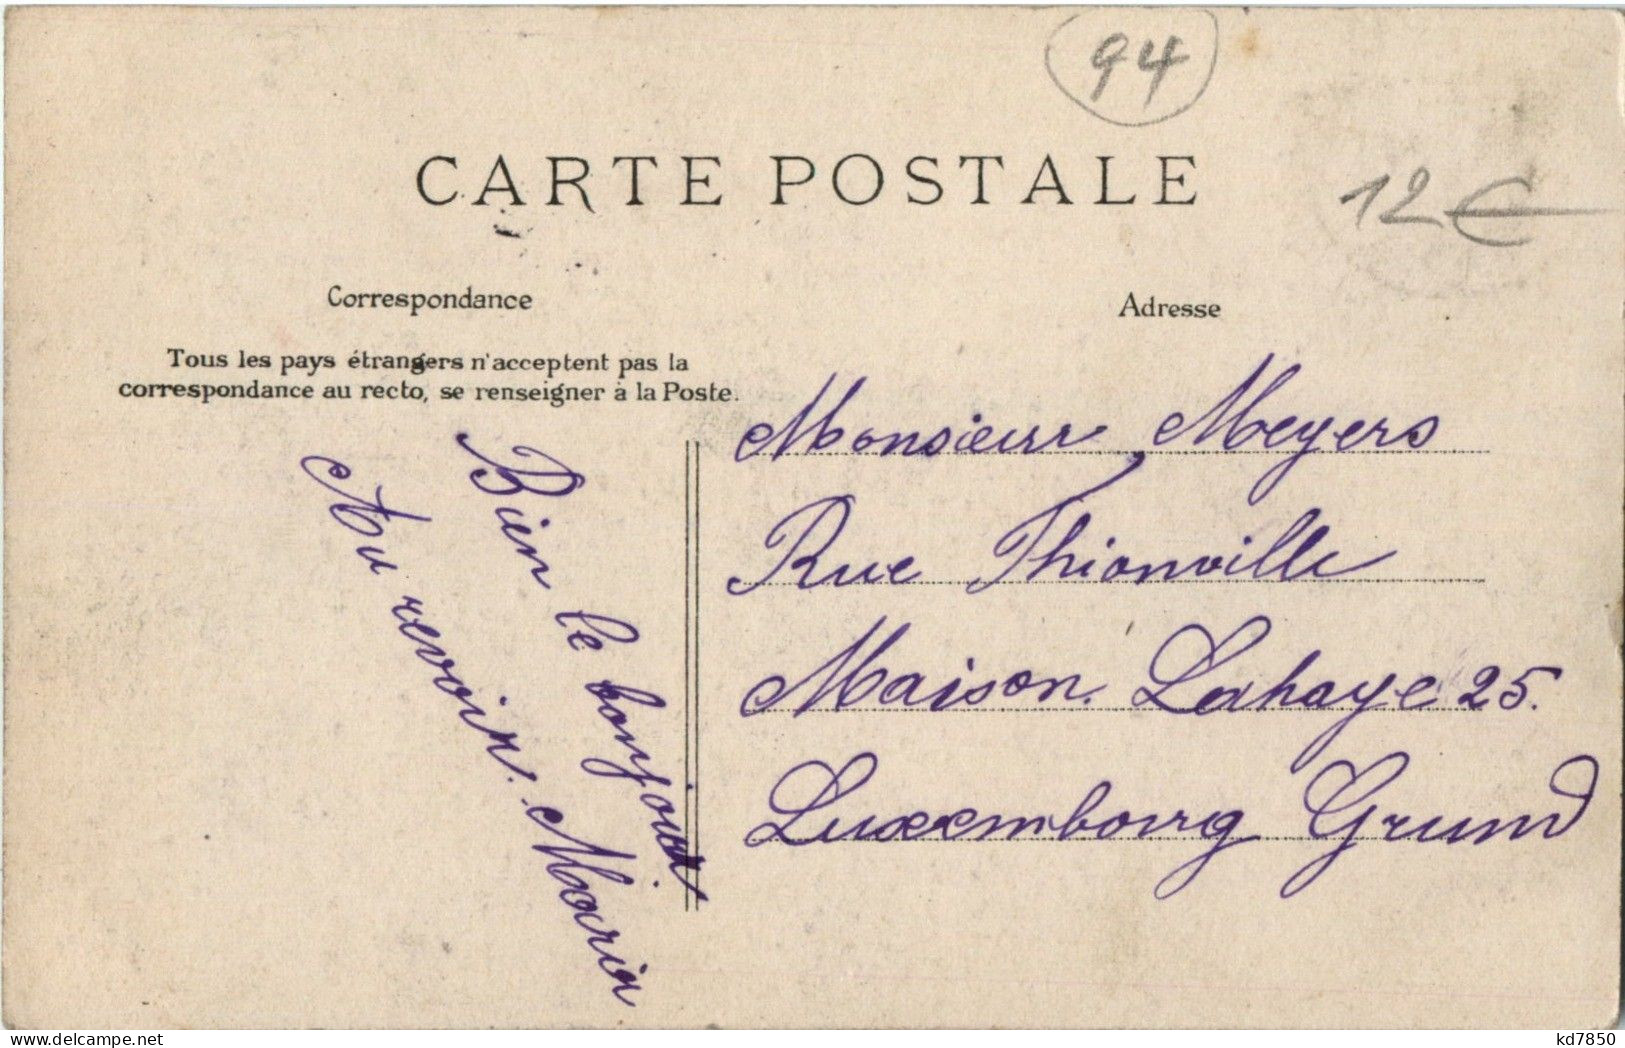 94
CARTE POSTALE
12€
Correspondance
Adresse
Tous les pays étrangers n'acceptent pas la
correspondance au recto, se renseigner à la Poste.
Bien le bonjour
Au revoir. Maria
Monsieur Meyers
Rue Thionville
Maison Lahaye 25.
Luxembourg Grund
kd7850